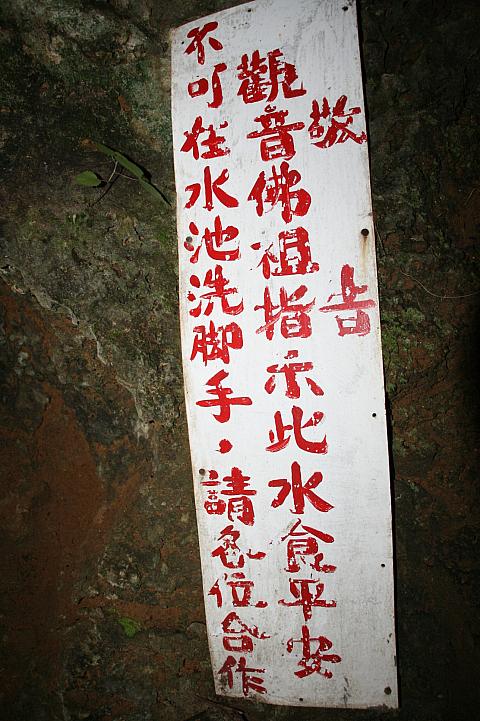 敬告
觀音佛祖指示此水食平安
不可在水池洗脚手，請各位合作